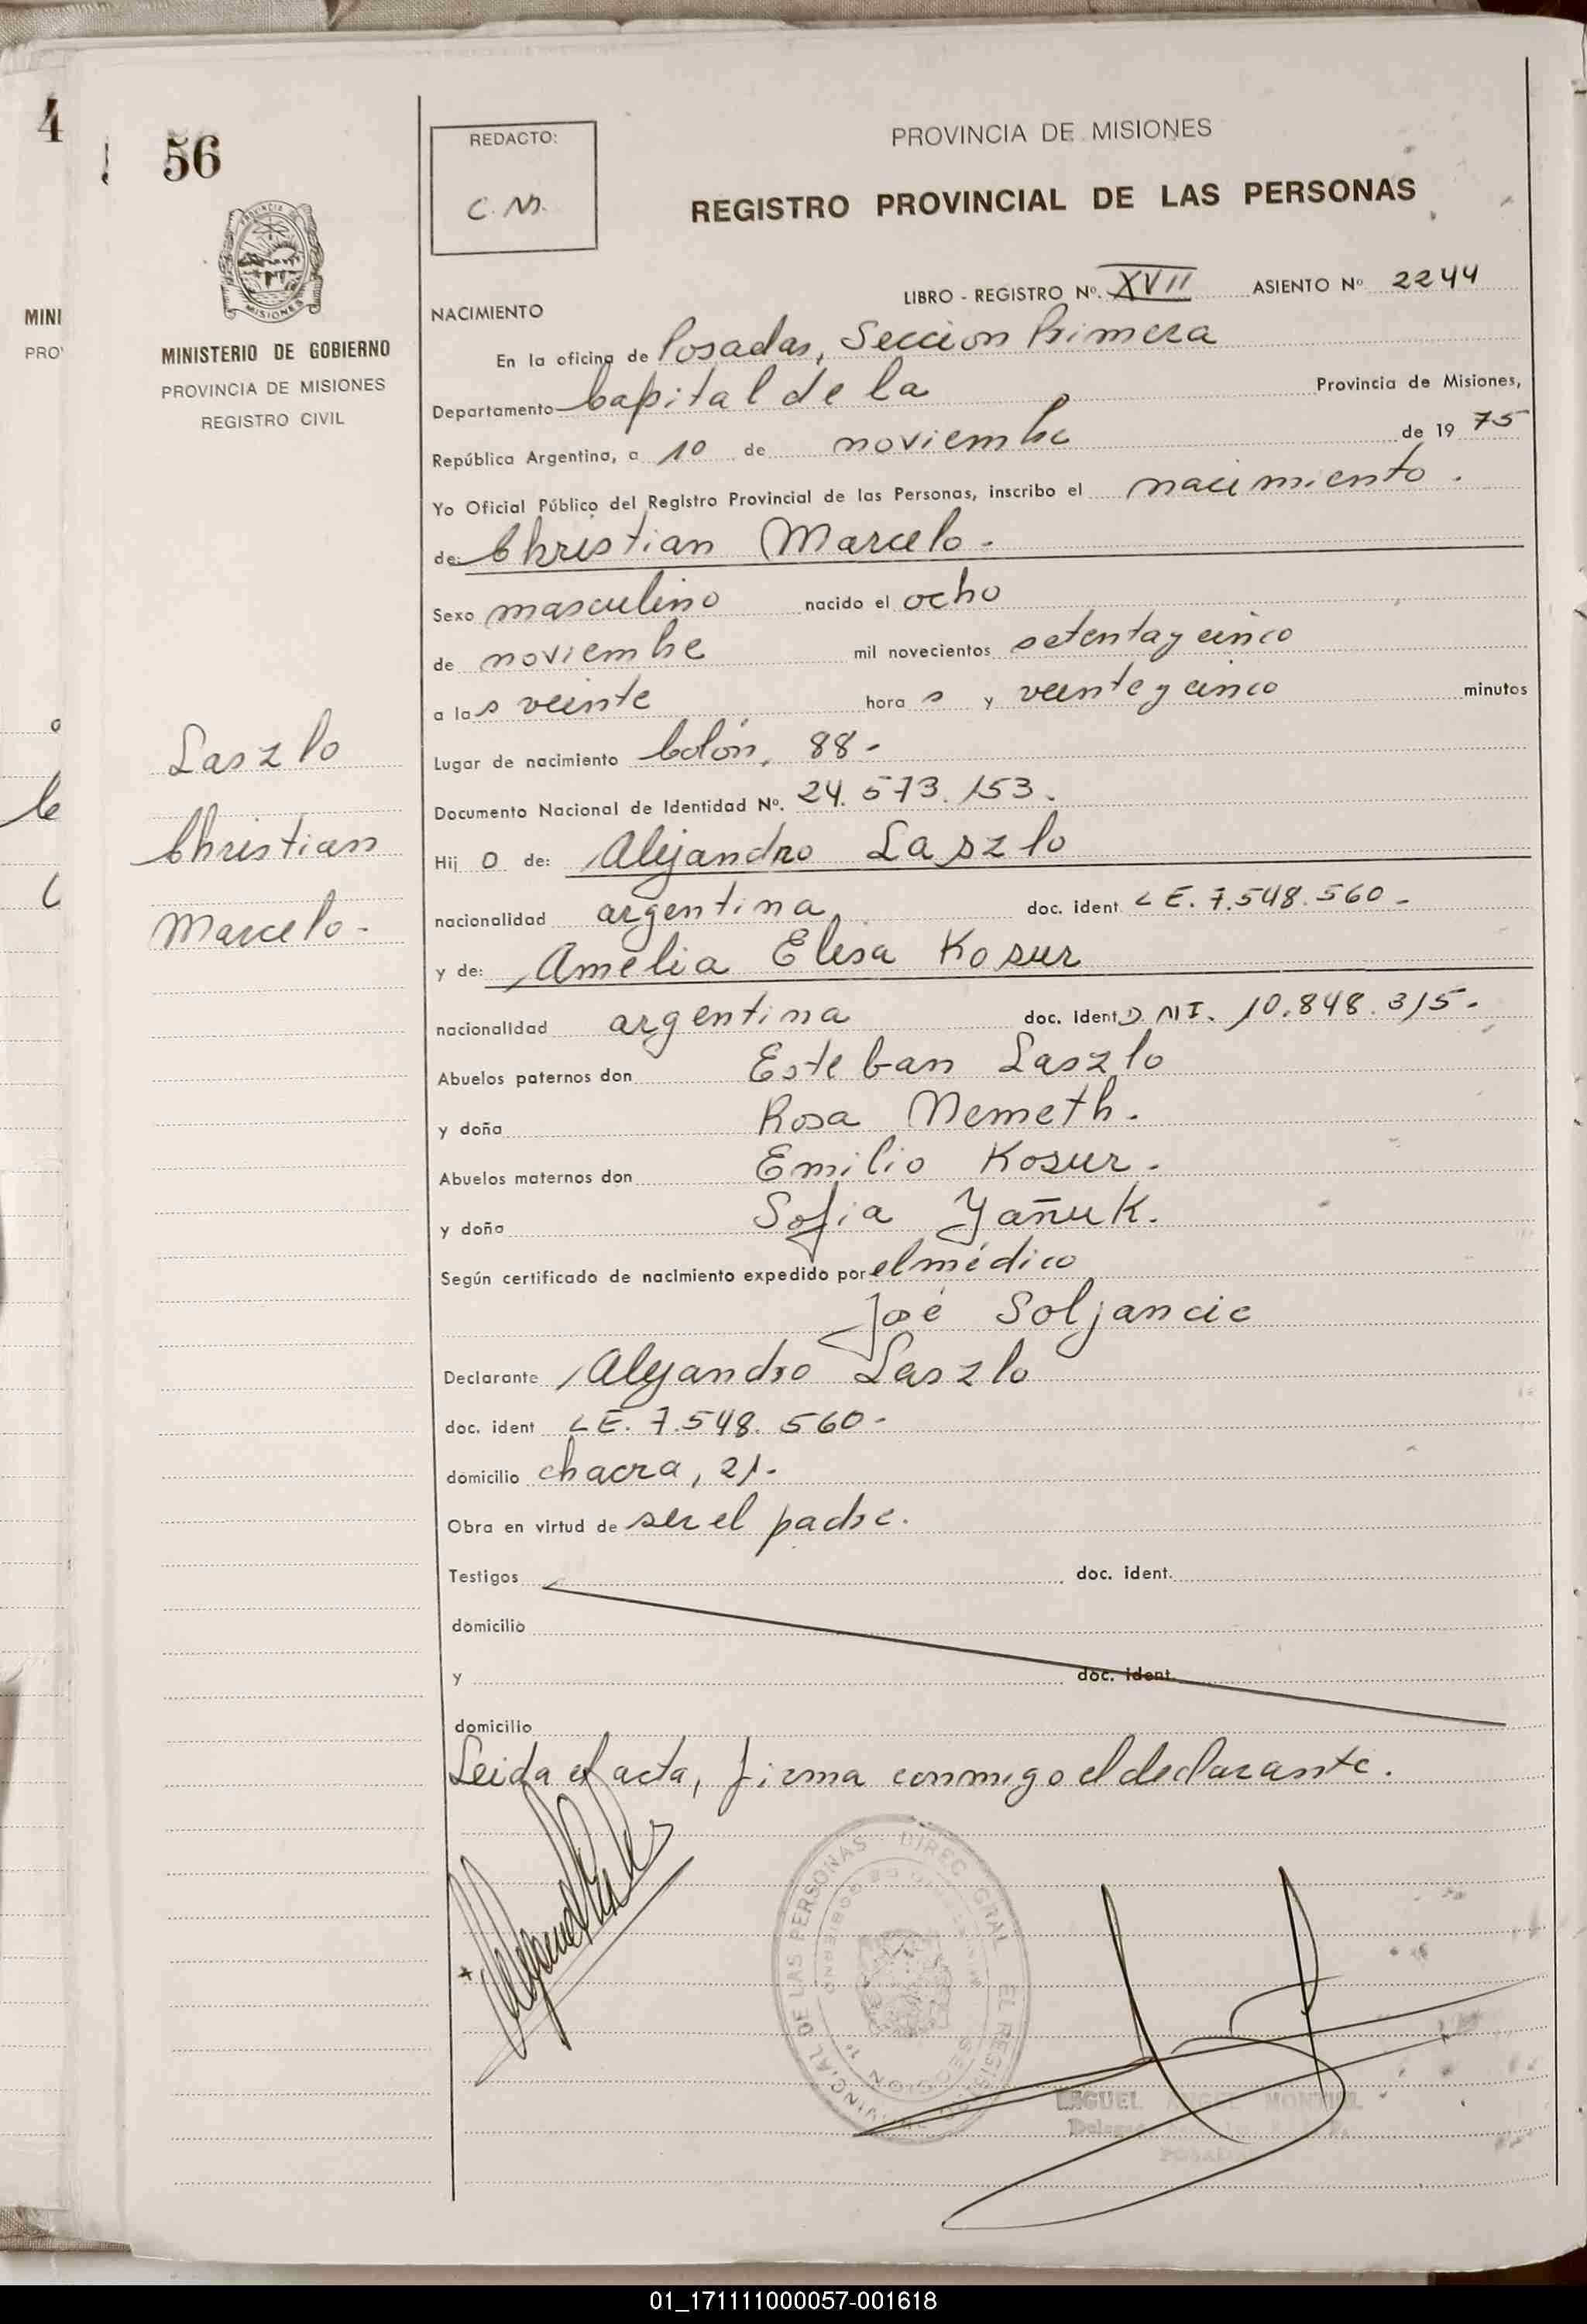 4
56
REDACTO:
C.M.
PROVINCIA DE MISIONES
REGISTRO PROVINCIAL DE LAS PERSONAS
MINI
PRO
PROVINCIA DE
MISIONES
MINISTERIO DE GOBIERNO
PROVINCIA DE MISIONES
REGISTRO CIVIL
LIBRO - REGISTRO Nº. XVII ASIENTO Nº 2244
NACIMIENTO
En la oficina de Posadas, Seccion Primera
Departamento Capital de la Provincia de Misiones,
República Argentina, a 10 de noviembre de 19 75
Yo Oficial Público del Registro Provincial de las Personas, inscribo el nacimiento.
de: Christian Marcelo.-
Sexo masculino nacido el ocho
de noviembre mil novecientos setenta y cinco
a las veinte horas y veinte y cinco minutos
Lugar de nacimiento Colón, 88-
Documento Nacional de Identidad Nº. 24.573.153.
Laszlo
Christian
Marcelo-
Hijo de: Alejandro Laszlo
nacionalidad argentina doc. ident. LE. 7.548.560-
y de: Amelia Elisa Kosur
nacionalidad argentina doc. ident D.NI. 10.848.315-
Abuelos paternos don Esteban Laszlo
y doña Rosa Nemeth.
Abuelos maternos don Emilio Kosur.
y doña Sofia Yañuk.
Según certificado de nacimiento expedido por el médico
José Soljancic
Declarante Alejandro Laszlo
doc. ident LE. 7.548.560-
domicilio chacra, 21.
Obra en virtud de ser el padre.
Testigos doc. ident.
domicilio
y doc. ident.
domicilio
Leida el acta, firma conmigo el declarante.
DIREC. GRAL EL REGISTRO PROVINCIAL DE LAS PERSONAS
MINISTERIO DE GOBIERNO
SECCION 1º
MIGUEL ANGEL MONTIEL
POSADAS
01_171111000057-001618